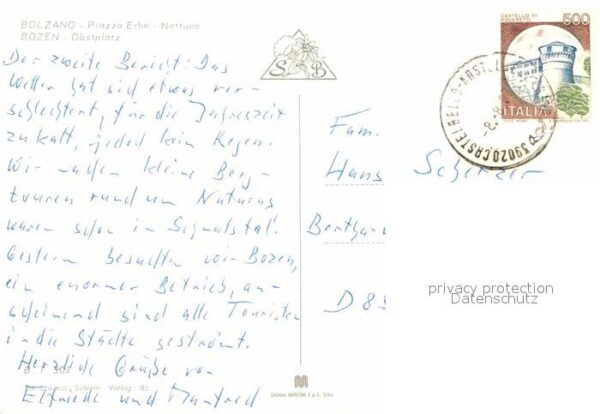 BOLZANO - Piazza Erbe - Nettuno
BOZEN - Obstplatz
S B
Der zweite Bericht: Das
Wetter hat sich etwas ver-
schlechtert, für die Jahreszeit
zu kalt, jedoch kein Regen.
Wir machen kleine Berg-
touren rund um Naturns
waren schon im Schnalstal.
Gestern besuchten wir Bozen,
ein enormer Betrieb, an-
scheinend sind alle Touristen
in die Städte geströmt.
Herzliche Grüße von
Elfriede und Manfred
CASTELLO DI
ROVERETO
500
ITALIA
39020 CASTELBELLO
Fam.
Hans Scherzer
D 8
privacy protection
Datenschutz
503
Verlag - Bz